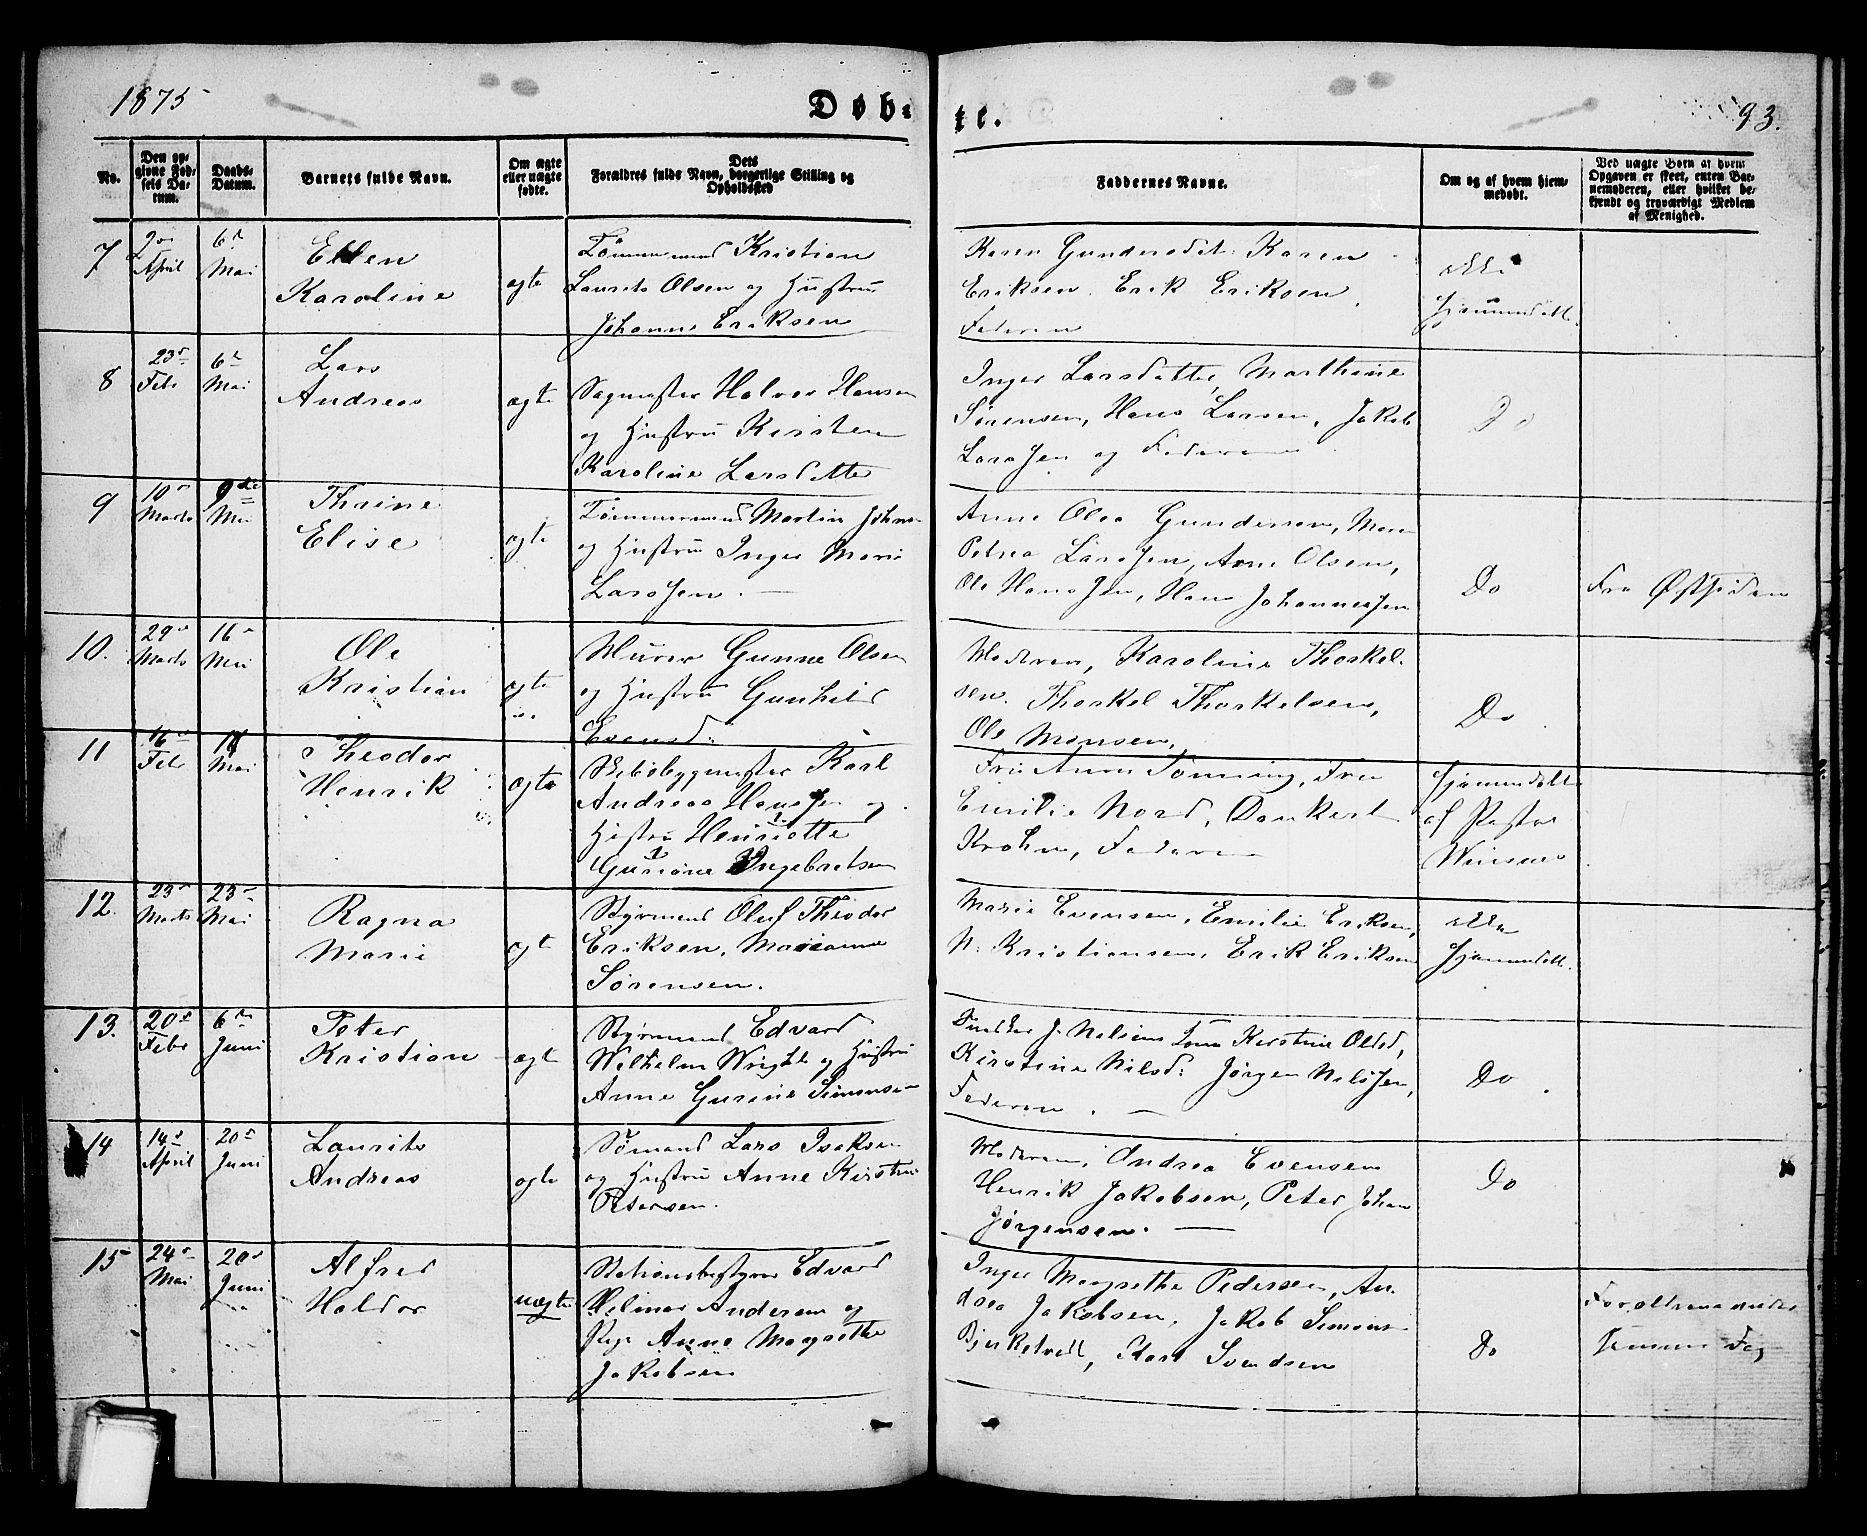 1875
Døb-
te.
93.
No.
Den op-
givne Fød-
sels Da-
tum.
Daabs-
Datum.
Barnets fulde Navn.
Om ægte
eller uægte
fødte.
Dets
Forældres fulde Navn, borgerlige Stilling og
Opholdssted
Faddernes Navne.
Om og af hvem hjem-
medøbt.
Ved uægte Børn af hvem
Opgaven er skeet, enten Bar-
nemoderen, eller hvilket be-
kjendt og troværdigt Medlem
af Menighed.
7
April
6
Mai
Ellen
Karoline
ægte
Tømmermand Kristian
Laurits Olsen og Hustru
Johanne Eriksen
Karen Gundersdat: Karen
Eriksen. Erik Eriksen,
Faderen
ikke
Hjemmedøbt.
8
23
Febr
6
Mai
Lars
Andreas
ægte
Sagmester Halvor Hansen
og Hustru Kirsten
Karoline Larsdatter
Inger Larsdatter, Marthine
Sørensen, Hans Larsen, Jakob
Larssen og Faderen
Do
9
10
Marts
9de
Mai
Thrine
Elise
ægte
Tømmermand Martin Johns-
og Hustru Inger Marie
Larssen. —
Anne Olea Gundersen, Maren
Petrea Larssen, Arne Olsen,
Ole Hanssen, Hans Johannessen
Do
Fra Østsiden
10.
29
Marts
16
Mai
Ole
Kristian
ægte
Murer Gunne Olsen
og Hustru Gunhild
Evensd:
Moderen, Karoline Thorkel-
sen. Thorkel Thorkelsen,
Ole Monsen,
Do
11
16
Febr
Mai
Theodor
Henrik
ægte
Skibsbygmester Karl
Andreas Hanssen og
Hustru Henriette
Gurine Ingebretsen
Fru Anne Tønning, Fru
Emilie Nord, Dankert
Krohn, Faderen
Hjemmedøbt
af Pastor
Winsnes
12.
23
Marts
23
Mai
Ragna
Marie
ægt
Styrmand Oluf Theodor
Eriksen, Marianne
Sørensen.
Marie Evensen, Emilie Eriksen,
N. Kristiansen, Erik Eriksen
ikke
Hjemmedøbt.
13.
20
Febr
6
Juni
Peter
Kristian
ægt
Styrmand Edvard
Wilhelm Wright og Hustru
Anne Gurine Simonsen
J. Nielsens Kirstine Olsd,
Kirstine Nilsd: Jørgen Nilssen,
Faderen. —
Do
14
14
April
20
Juni
Laurits
Andreas
ægte
Sømand Lars Isaksen
og Hustru Anne Kirstine
Petersen.
Moderen, Andrea Evensen
Henrik Jakobsen, Peter Johan
Jørgensen. —
Do
15
24
Mai
20
Juni
Alfred
Haldor
uægte
Stationsbestyrer Edvard
Helmer Andersen og
Pige Anne Margrethe
Jakobsen
Inger Margrethe Pedersen, An-
drea Jakobsen, Jakob Simons
Bjerketvedt, Karl Svendsen
Do
Forældrene